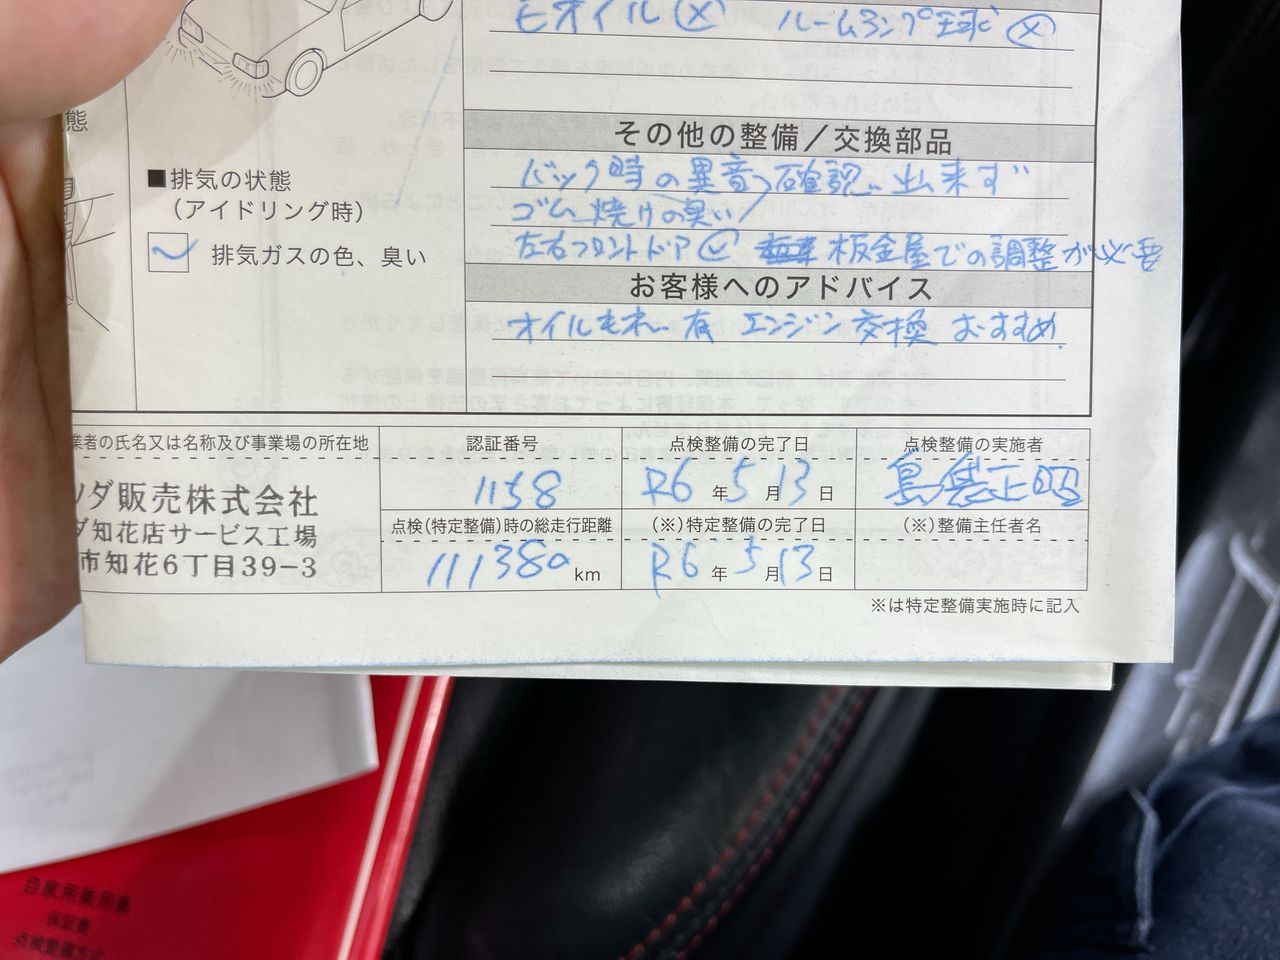 Eオイル(×) ルームランプ球(×)
その他の整備／交換部品
バック時の異音 確認出来ず
ゴム焼けの臭い
左右フロントドア 板金屋での調整が必要
お客様へのアドバイス
オイルもれ有 エンジン交換おすすめ
態
■排気の状態
（アイドリング時）
排気ガスの色、臭い
業者の氏名又は名称及び事業場の所在地
ダ販売株式会社
ダ知花店サービス工場
市知花6丁目39-3
認証番号
1158
点検(特定整備)時の総走行距離
111380 km
点検整備の完了日
R6年5月13日
(※)特定整備の完了日
R6年5月13日
点検整備の実施者
(※)整備主任者名
※は特定整備実施時に記入
自家用乗用車
保証書
点検整備方式